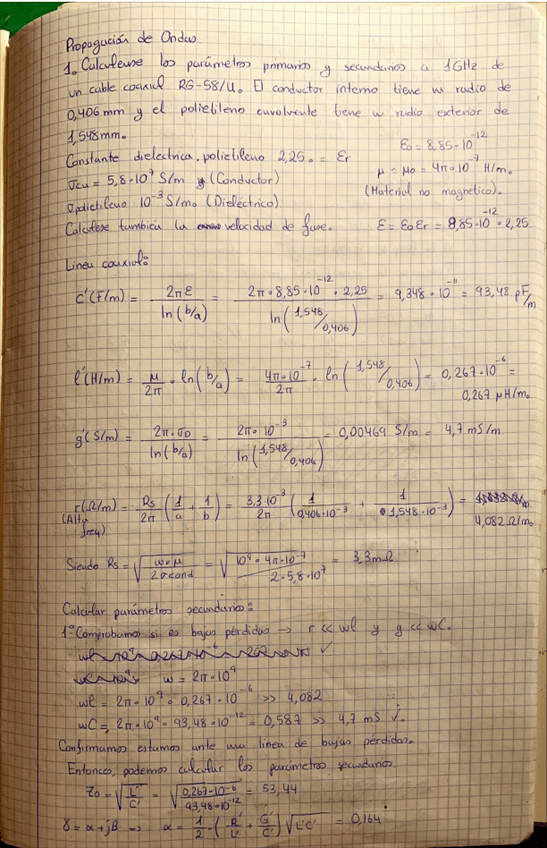 Propagación de Ondas
1. Calculense los parámetros primarios y secundarios a 1GHz de
un cable coaxial RG-58/U. El conductor interno tiene un radio de
0,406mm y el polietileno envolvente tiene un radio exterior de
1,548mm.
ε₀ = 8,85·10⁻¹²
Constante dielectrica polietileno 2,25. = εr
μ = μ₀ = 4π·10⁻⁷ H/m.
σcu = 5,8·10⁷ S/m (Conductor)
(Material no magnetico).
σpolietileno 10⁻³ S/m. (Dieléctrico)
Calculese también la velocidad de fase.
ε = ε₀εr = 8,85·10⁻¹²·2,25
Linea coaxial:
c'(F/m) = 2πε / ln(b/a) = 2π·8,85·10⁻¹²·2,25 / ln(1,548/0,406) = 9,348·10⁻¹¹ = 93,48 pF/m
l'(H/m) = μ/2π · ln(b/a) = 4π·10⁻⁷/2π · ln(1,548/0,406) = 0,267·10⁻⁶ =
0,267 μH/m.
g'(S/m) = 2π·σD / ln(b/a) = 2π·10⁻³ / ln(1,548/0,406) = 0,00469 S/m = 4,7 mS/m.
r(Ω/m) = Rs/2π (1/a + 1/b) = 3,3·10⁻³/2π (1/0,406·10⁻³ + 1/1,548·10⁻³) =
4,082 Ω/m.
(Alta
freq)
Siendo Rs = √(ω·μ / 2σcond) = √(10⁹·4π·10⁻⁷ / 2·5,8·10⁷) = 3,3mΩ.
Calcular parámetros secundarios:
1º Comprobamos si es bajas pérdidas → r << ωl y g << ωc.
ω = 2π·10⁹
ωl = 2π·10⁹·0,267·10⁻⁶ >> 4,082
ωC = 2π·10⁹·93,48·10⁻¹² = 0,587 >> 4,7 mS ✓.
Confirmamos estamos ante una linea de bajas pérdidas.
Entonces, podemos calcular los parámetros secundarios.
Z₀ = √(L'/C') = √(0,267·10⁻⁶ / 93,48·10⁻¹²) = 53,44
γ = α + jβ → α = 1/2 · (R'/L' + G'/C') √L'C' = 0,164